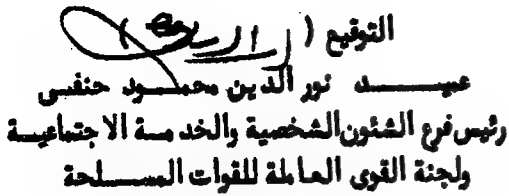 التوقيع (        )
عميد نور الدين محمود حنفى
رئيس فرع الشئون الشخصية والخدمة الاجتماعية
ولجنة القوى العاملة للقوات المسلحة